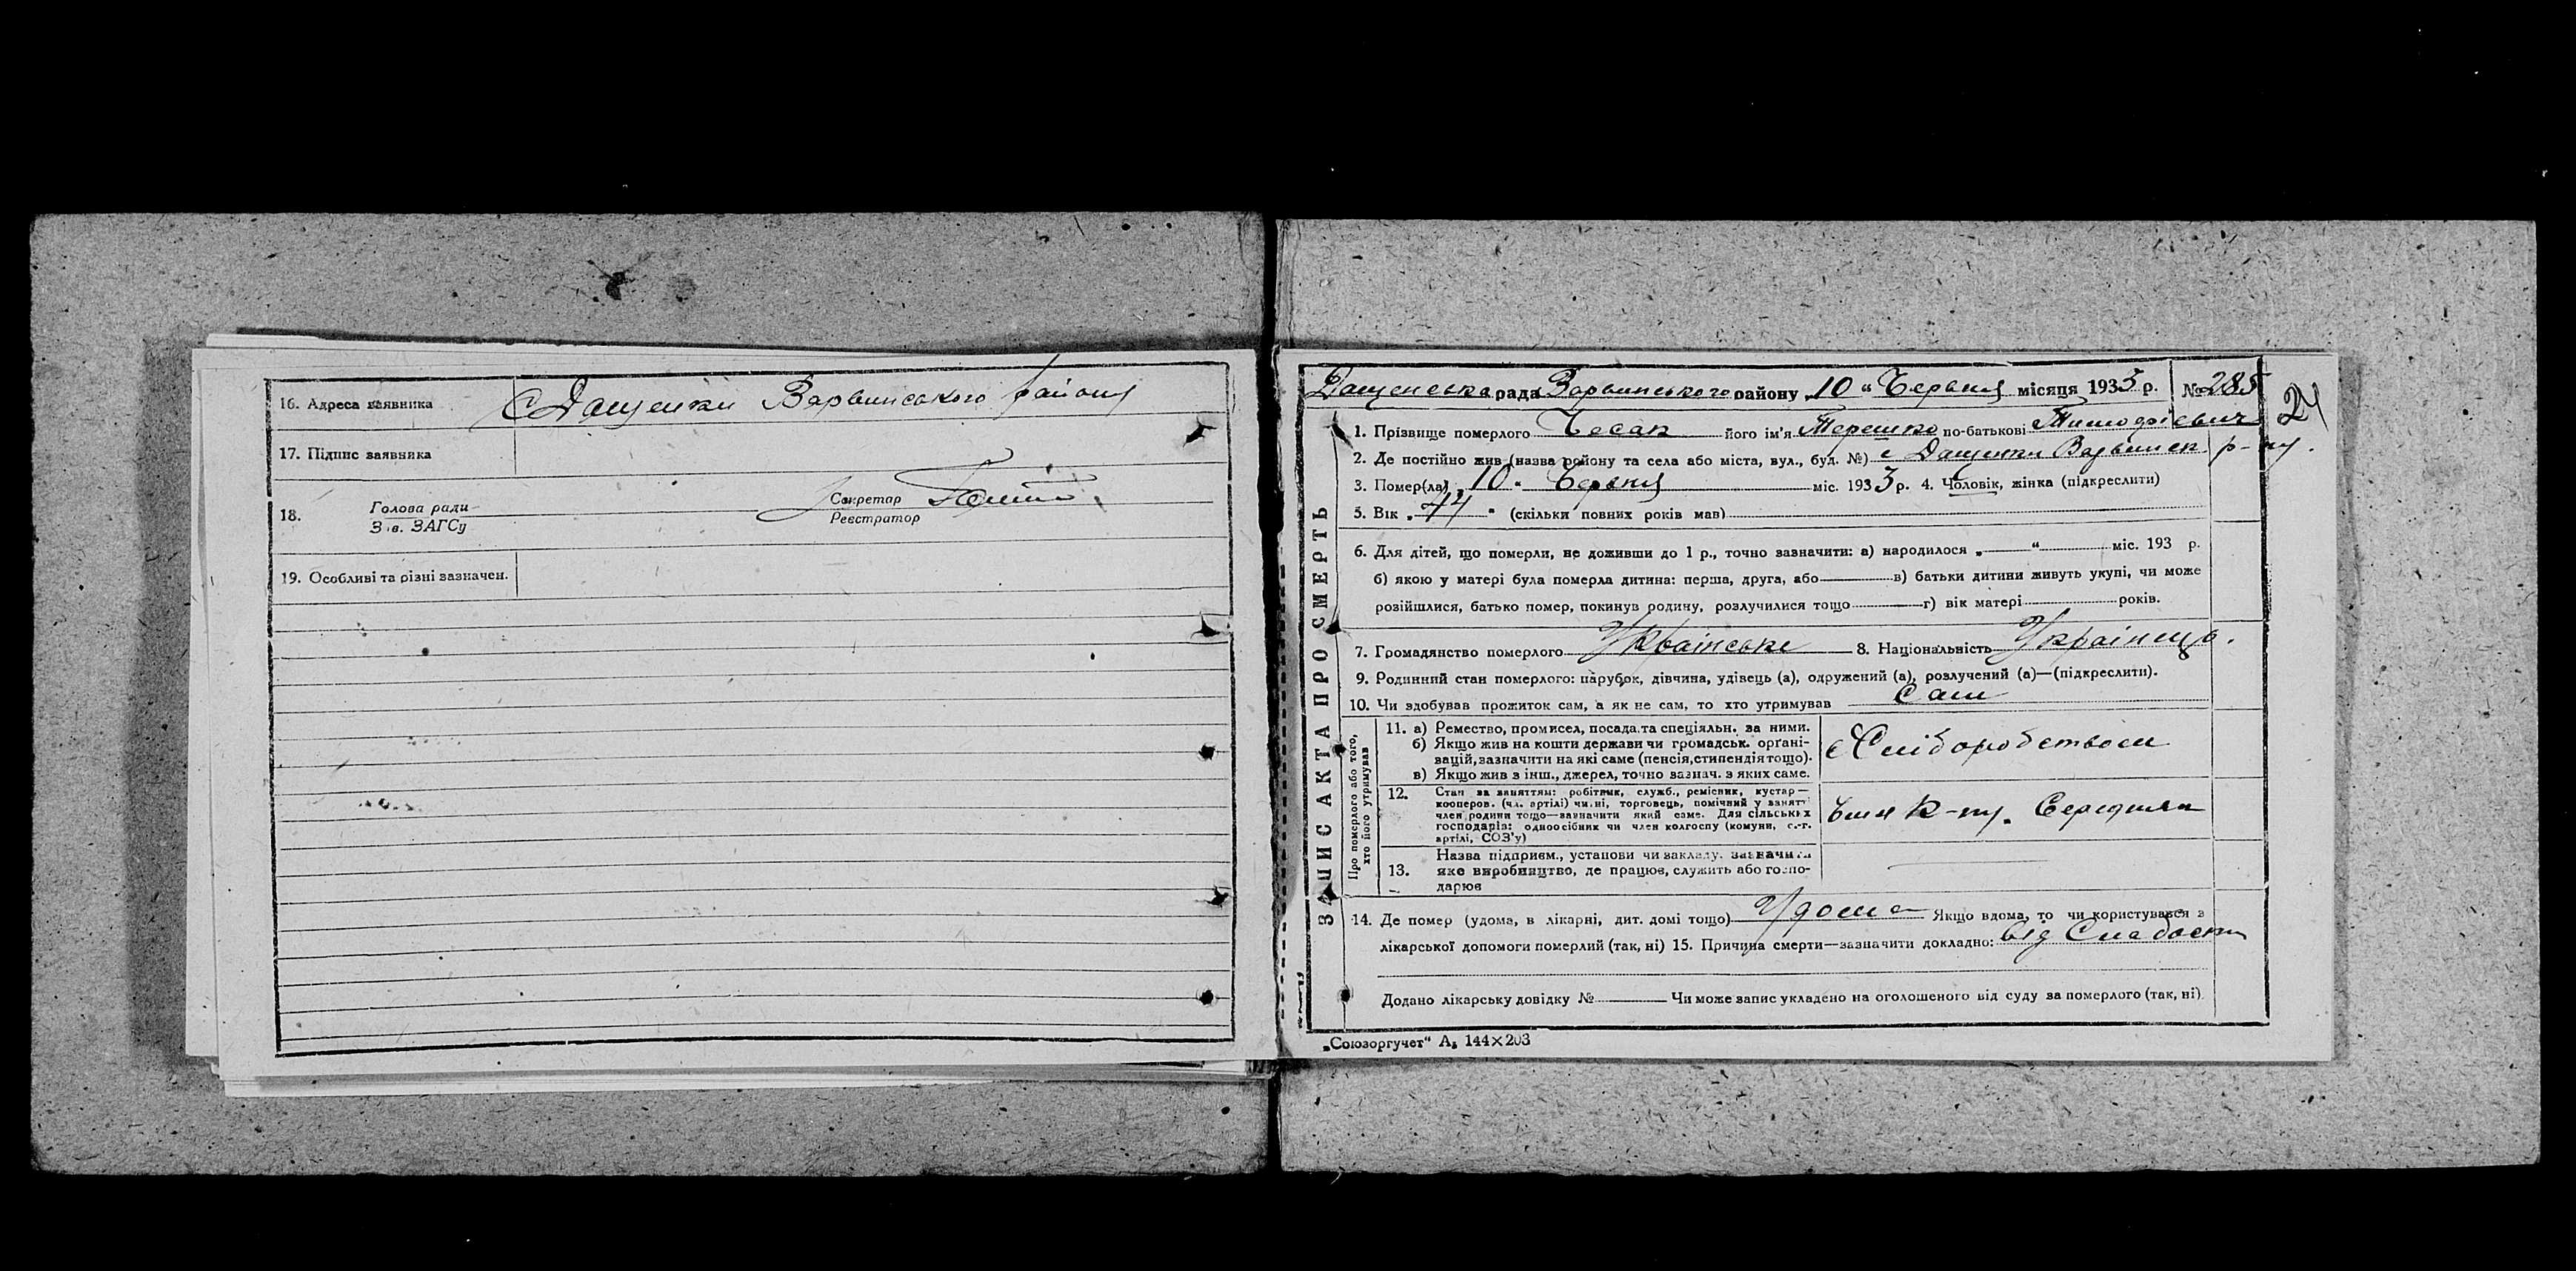 16. Адреса заявника с Дащенки Варвинського району
17. Підпис заявника
18. Голова ради Секретар
Зав. ЗАГСу Реєстратор
19. Особливі та різні зазначен.
ЗАПИС АКТА ПРО СМЕРТЬ
Дащенська рада Варвинського району „10 “ Червня місяця 1933 р. № 285
24
1. Прізвище померлого Чесак його ім'я Терешко по-батькові Тимофієвич
2. Де постійно жив (назва району та села або міста, вул., буд. №) с Дащенки Варвинск р-ну.
3. Помер(ла) „10“ Червня міс. 1933 р. 4. Чоловік, жінка (підкреслити)
5. Вік „74“ (скільки повних років мав)
6. Для дітей, що померли, не доживши до 1 р., точно зазначити: а) народилося „ “ міс. 193 р.
б) якою у матері була померла дитина: перша, друга, або в) батьки дитини живуть укупі, чи може
розійшлися, батько помер, покинув родину, розлучилися тощо г) вік матері років.
7. Громадянство померлого Українське 8. Національність Українець.
9. Родинний стан померлого: парубок, дівчина, удівець (а), одружений (а), розлучений (а)—(підкреслити).
10. Чи здобував прожиток сам, а як не сам, то хто утримував Сам
Про померлого або того, хто його утримував
11. а) Ремество, промисел, посада та спеціяльн. за ними.
б) Якщо жив на кошти держави чи громадськ. органі-
зацій, зазначити на які саме (пенсія, стипендія тощо).
в) Якщо жив з інш., джерел, точно зазнач. з яких саме.
Хліборобством
12. Стан за заняттям: робітник, служб., ремісник, кустар—
кооперов. (чл. артілі) чи ні, торговець, помічний у занятті
член родини тощо—зазначити який саме. Для сільських
господарів: одноосібник чи член колгоспу (комуни, с.-г.
артілі, СОЗ'у)
Член К-пу. Середняк
13. Назва підприєм., установи чи закладу, зазначити
яке виробництво, де працює, служить або госпо-
дарює
14. Де помер (удома, в лікарні, дит. домі тощо) Удома Якщо вдома, то чи користувався з
лікарської допомоги померлий (так, ні) 15. Причина смерти—зазначити докладно: від Слабости
Додано лікарську довідку № Чи може запис укладено на оголошеного від суду за померлого (так, ні)
„Союзоргучет“ А₅ 144×203